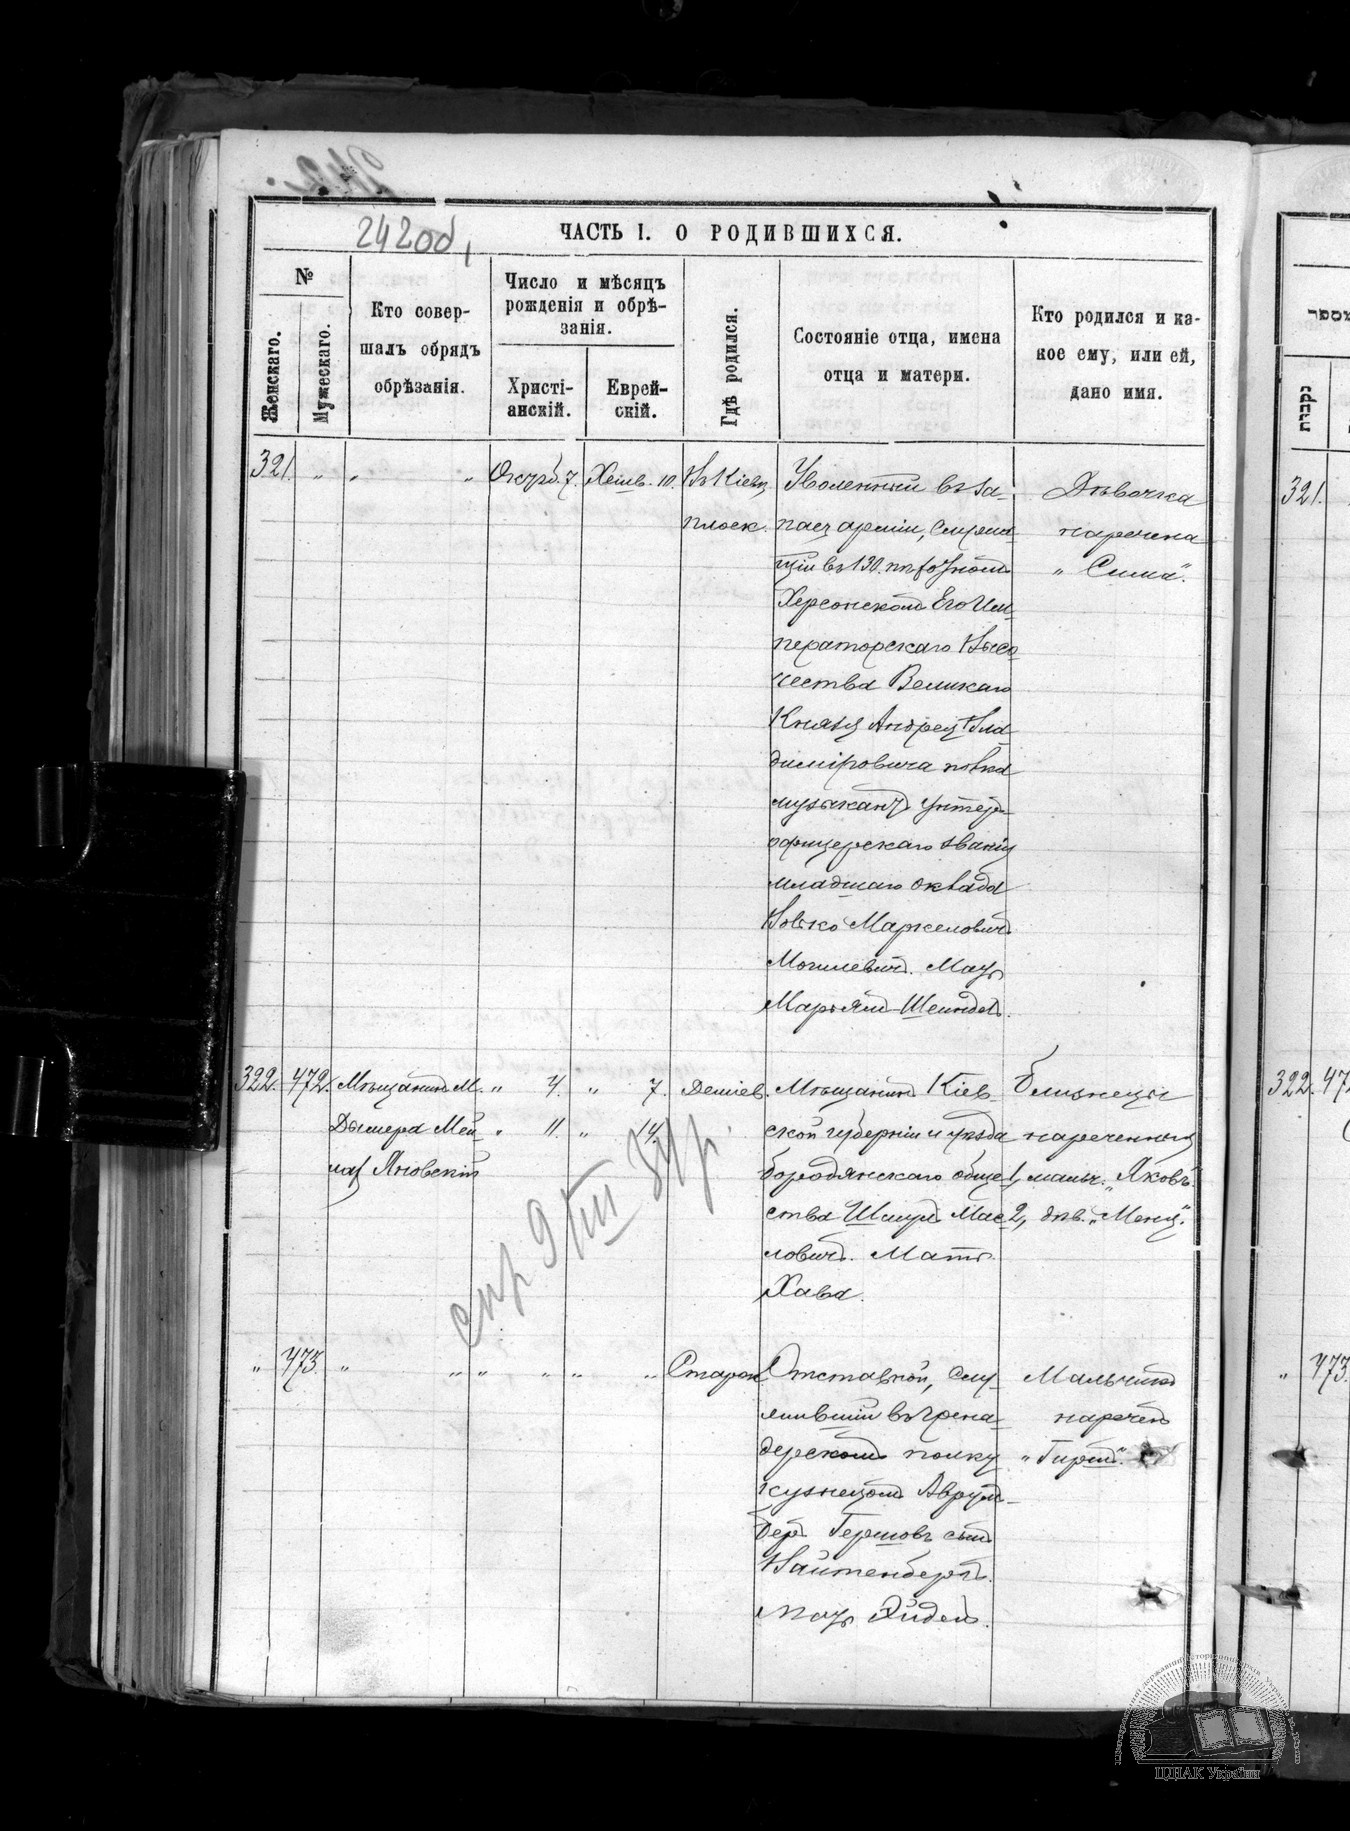 242 об,
ЧАСТЬ I. О РОДИВШИХСЯ.
№
Женскаго.
Мужескаго.
Кто совер-
шалъ обрядъ
обрѣзанія.
Число и мѣсяцъ
рожденія и обрѣ-
занія.
Христі-
анскій.
Еврей-
скій.
Гдѣ родился.
Состояніе отца, имена
отца и матери.
Кто родился и ка-
кое ему, или ей,
дано имя.
321. " " " Октяб. 7. Хешв. 10. Въ Кіевѣ,
плоск.
Уволенный въ за-
пасъ арміи, служив-
шій въ 130. пѣхотномъ
Херсонскомъ Его Им-
ператорскаго Высо-
чества Великаго
Князя Андрея Вла-
диміровича полка
музыкантъ унтеръ-
офицерскаго званія
младшаго оклада
Іовко Маркеловичъ
Могилевичъ. Мать
Марьямъ-Шейндель.
Дѣвочка
наречена
„Сима".
322. 472. Мѣщанинъ М. " 4. " 7. Деміев.
Дымера Мей- " 11. " 14.
лахъ Яновскій
Мѣщанинъ Кіев-
ской губерніи и уѣзда
бородянскаго обще-
ства Шмулъ
ловичъ. Мать
Хава.
близнецы
нареченныя
1, мальч. „Яковъ"
2, дѣв. „Меня".
спр 9/III 34 р.
" 473. " " " " " " Старок.
Отставной, слу-
жившій въ грена-
дерскомъ полку
кузнецомъ Аврумъ-
Беръ Гершовъ сынъ
Вайтенбергъ.
Мать Эйдель.
Мальчикъ
нареченъ
„Гиршъ".
מספר
נקבות
321.
322. 47
" 473.
ЦДІАК України